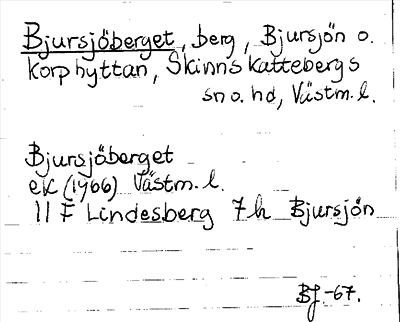 Bjursjöberget, berg, Bjursjön o.
Korphyttan, Skinnskattebergs
sn o. hd, Västm. l.
Bjursjöberget
ek (1966) Västm. l.
11 F Lindesberg 7h Bjursjön
BJ.-67.